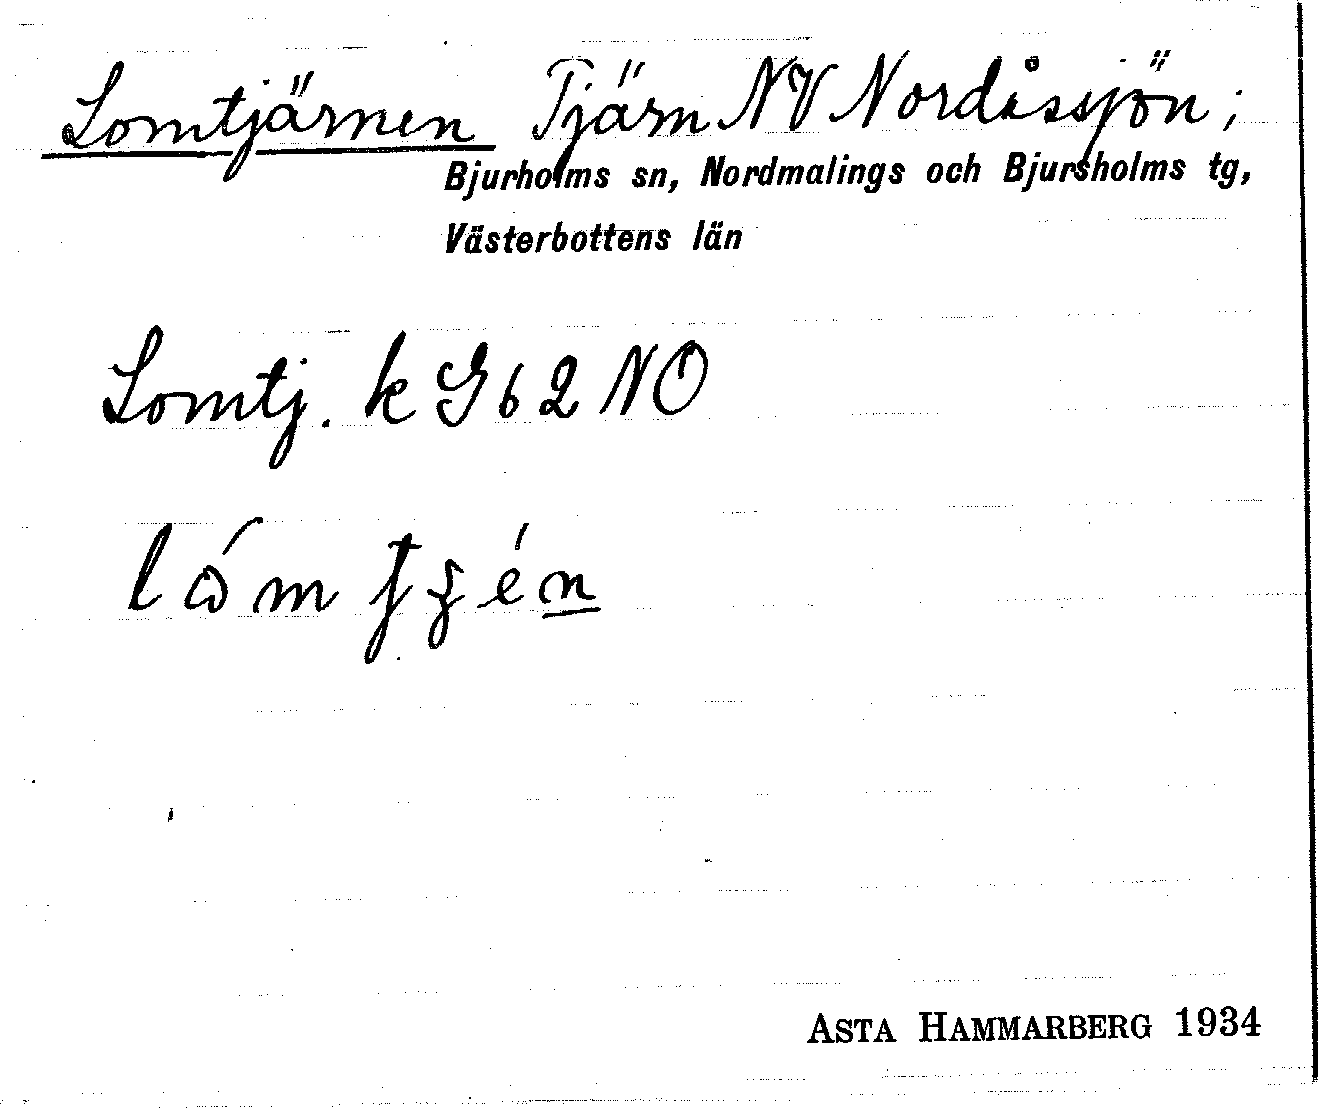 Lomtjärnen Tjärn NV Nordåssjön;
Bjurholms sn, Nordmalings och Bjursholms tg,
Västerbottens län
Lomtj. k G 62 NO
ASTA HAMMARBERG 1934